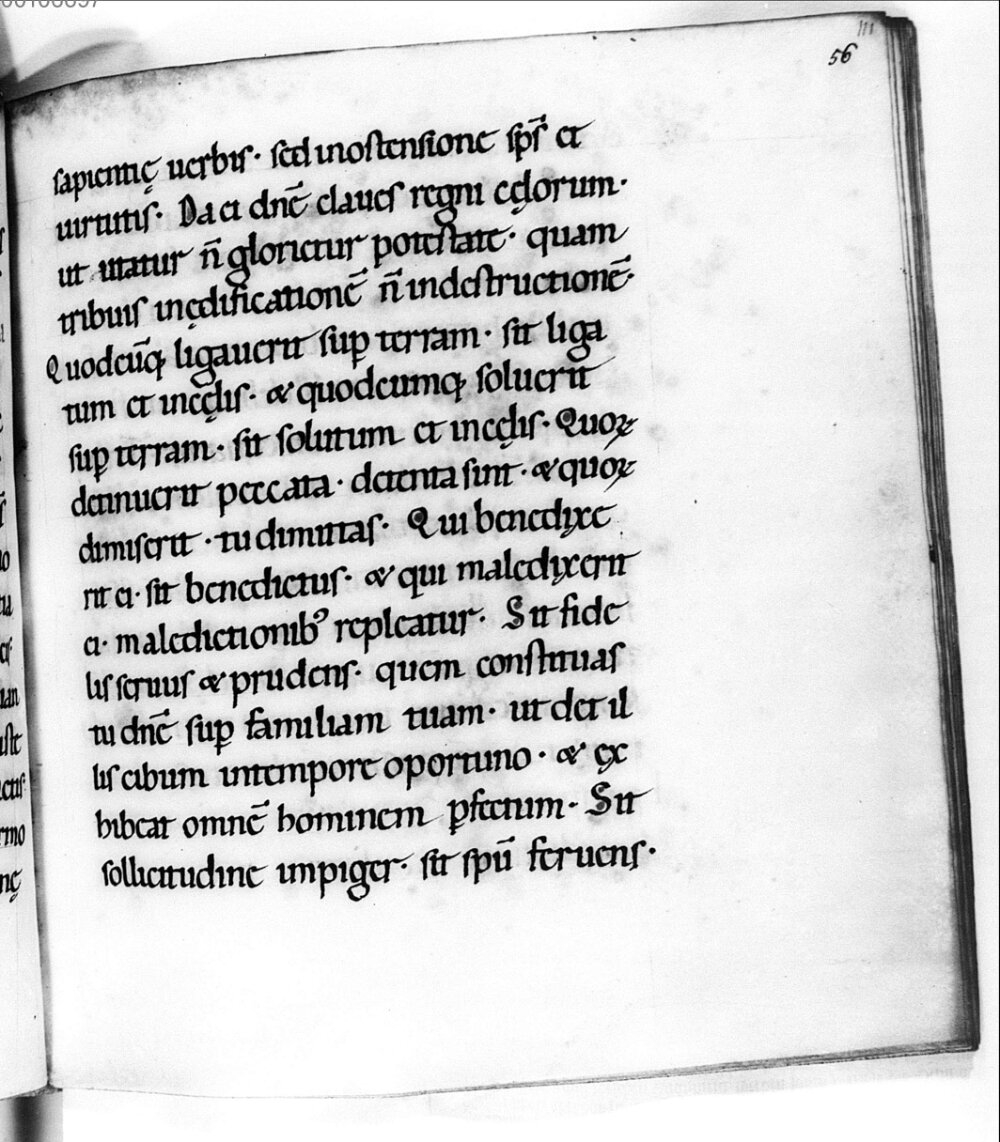 56
sapientię uerbis· sed inostensione sp̄s et
uirtutis· Da ei dn̄e claues regni cęlorum·
ut utatur n̄ glorietur potestate· quam
tribuis inędificationē n̄ indestructionē·
Quodcūq; ligauerit sup terram· sit liga
tum et incęlis· & quodcumq; soluerit
sup terram· sit solutum et incęlis· Quoꝝ
detinuerit peccata· detenta sint· & quoꝝ
dimiserit· tu dimittas· Qui benedixe
rit ei· sit benedictus· & qui maledixerit
ei· maledictionib; repleatur· Sit fide
lis seruus & prudens· quem constituas
tu dn̄e sup familiam tuam· ut det il
lis cibum intempore oportuno· & ex
hibeat omnē hominem ꝑfectum· Sit
sollicitudine impiger· sit spū feruens·